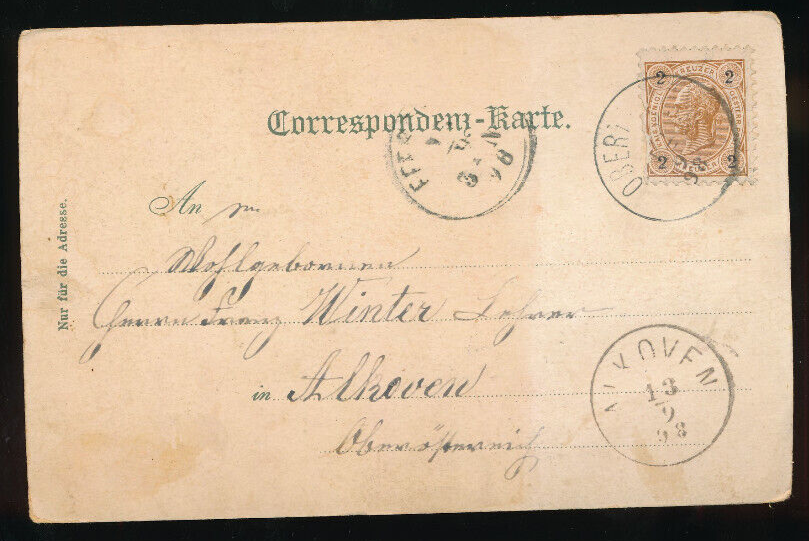 Correspondenz-Karte.
2 KREUZER 2
2 2
OBER
98
An
Nur für die Adresse.
Wohlgebornen
Herrn Franz Winter Lehrer
in Alkoven
Oberösterreich
ALKOVEN
13
9
98